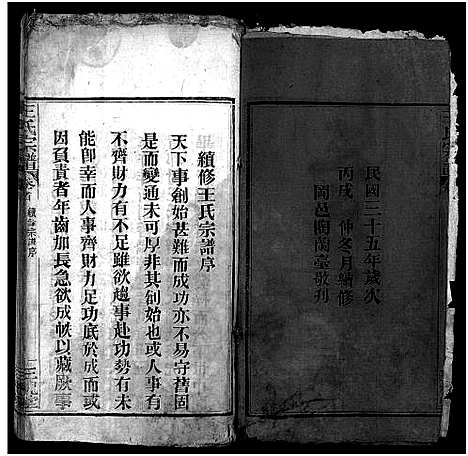 民國三十五年歲次
丙戌 仲冬月續修
岡邑陶蘭臺敬刊
續修王氏宗譜序
天下事創始甚難而成功亦不易守舊固
是而變通未可厚非其創始也或人事有
不齊財力有不足雖欲趨事赴功勢有未
能卽幸而人事齊財力足功底於成而或
因負責者年齒加長急欲成帙以藏厥事
王氏宗譜 卷首 續修宗譜序